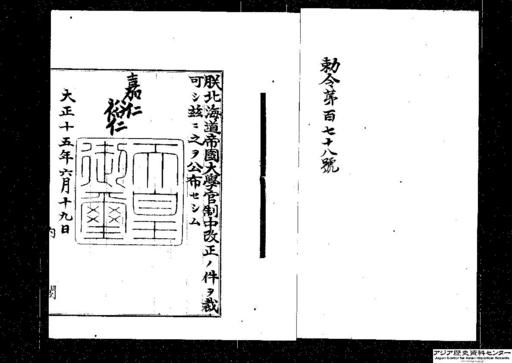 勅令第百七十八號
朕北海道帝國大學官制中改正ノ件ヲ裁
可シ玆ニ之ヲ公布セシム
嘉仁
裕仁
天皇
御璽
大正十五年六月十九日
内閣
アジア歴史資料センター
Japan Center for Asian Historical Records